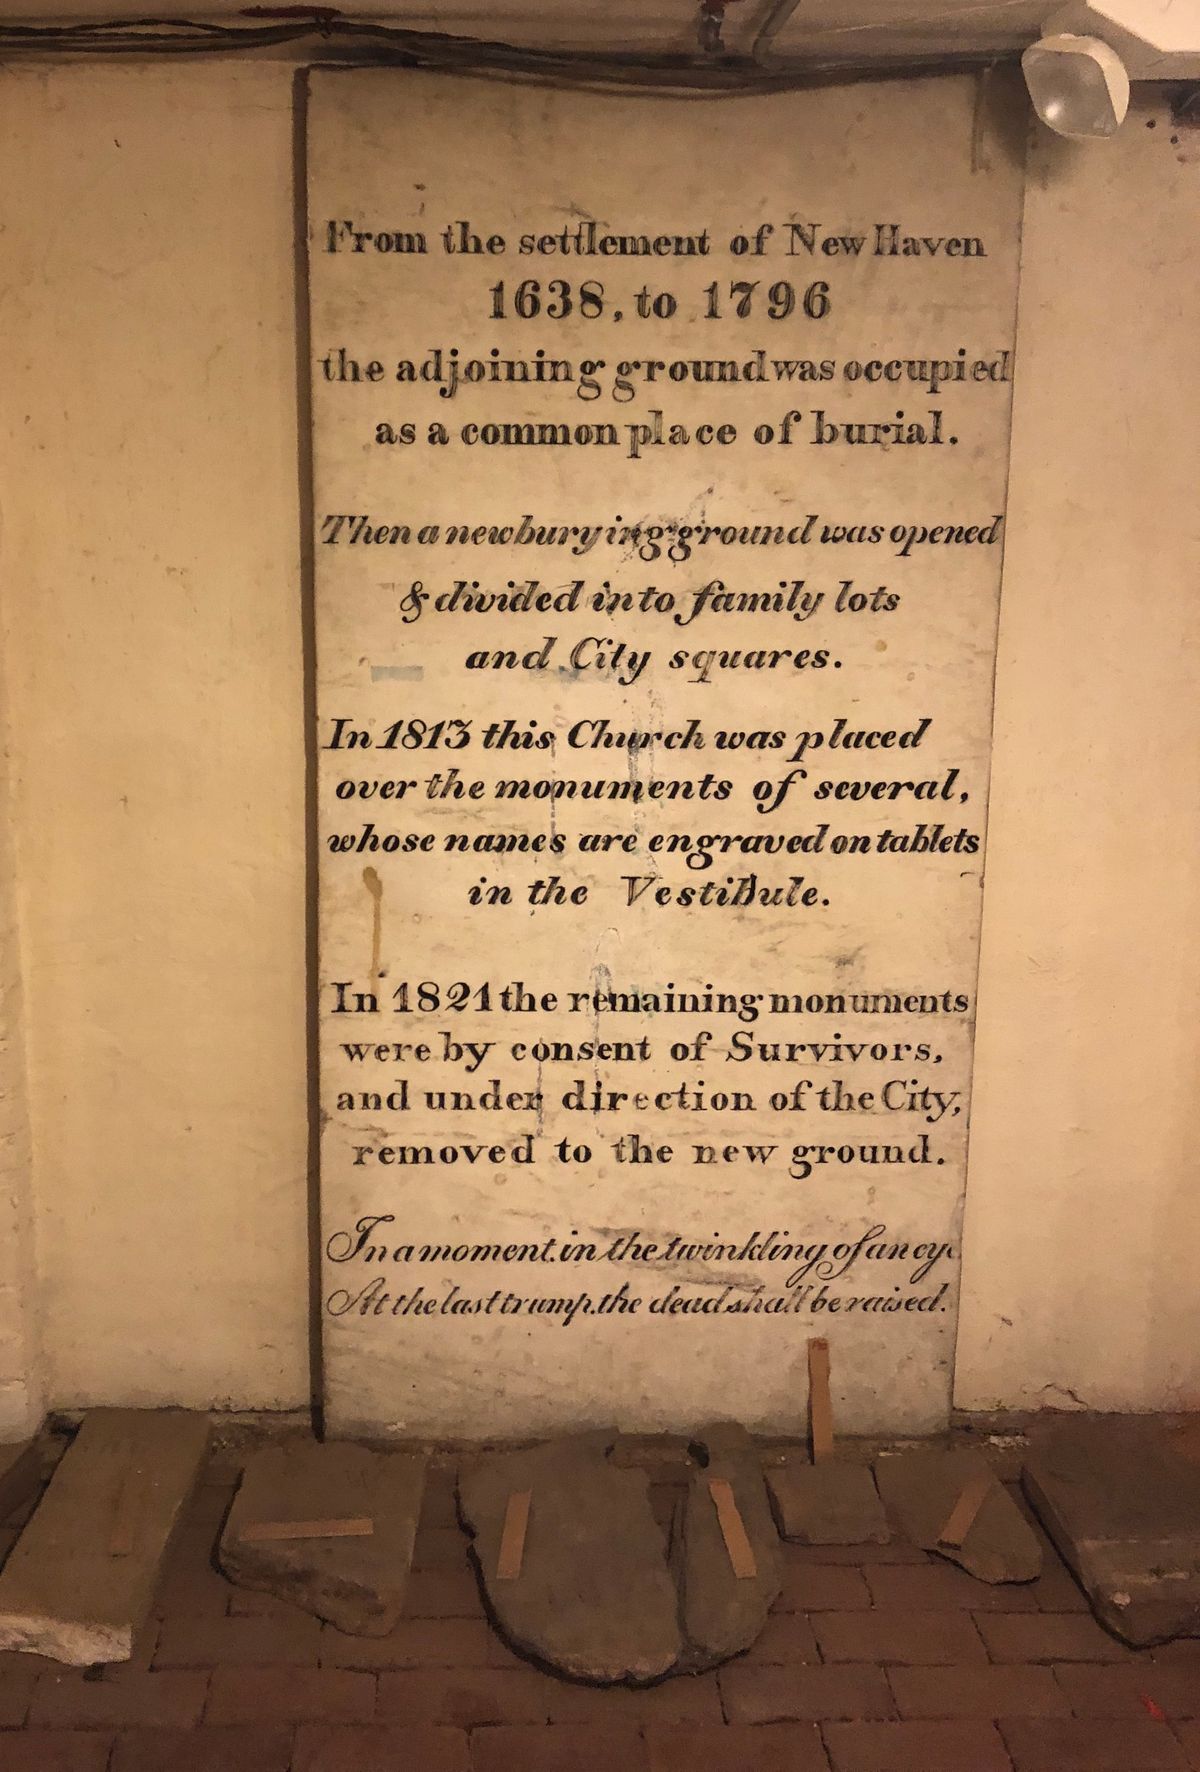 From the settlement of New Haven
1638, to 1796
the adjoining ground was occupied
as a common place of burial.
Then a new burying ground was opened
& divided into family lots
and City squares.
In 1813 this Church was placed
over the monuments of several,
whose names are engraved on tablets
in the Vestibule.
In 1821 the remaining monuments
were by consent of Survivors,
and under direction of the City,
removed to the new ground.
In a moment, in the twinkling of an eye
At the last trump, the dead shall be raised.